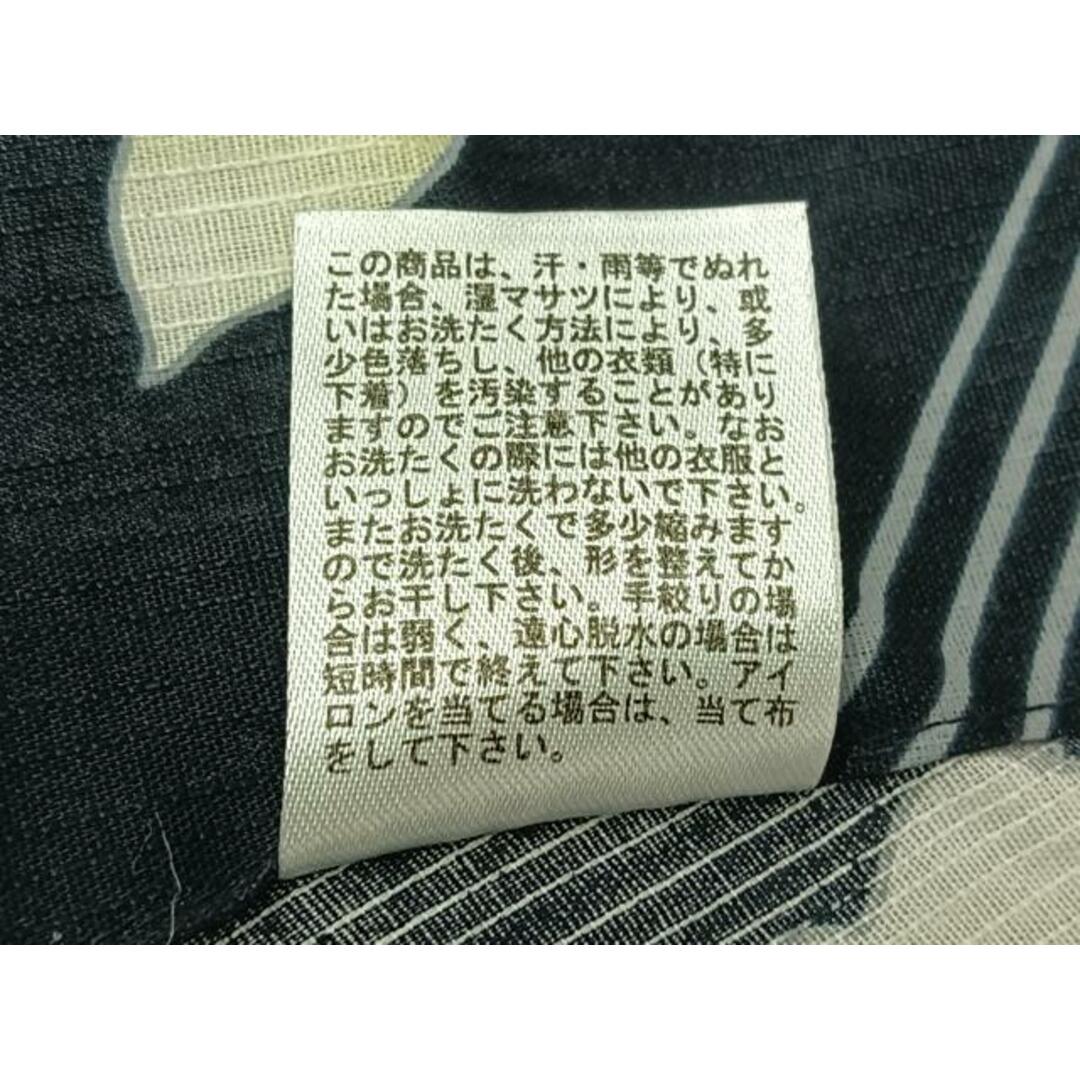 この商品は、汗・雨等でぬれ
た場合、湿マサツにより、或
いはお洗たく方法により、多
少色落ちし、他の衣類（特に
下着）を汚染することがあり
ますのでご注意下さい。なお
お洗たくの際には他の衣服と
いっしょに洗わないで下さい。
またお洗たくで多少縮みます
ので洗たく後、形を整えてか
らお干し下さい。手絞りの場
合は弱く、遠心脱水の場合は
短時間で終えて下さい。アイ
ロンを当てる場合は、当て布
をして下さい。